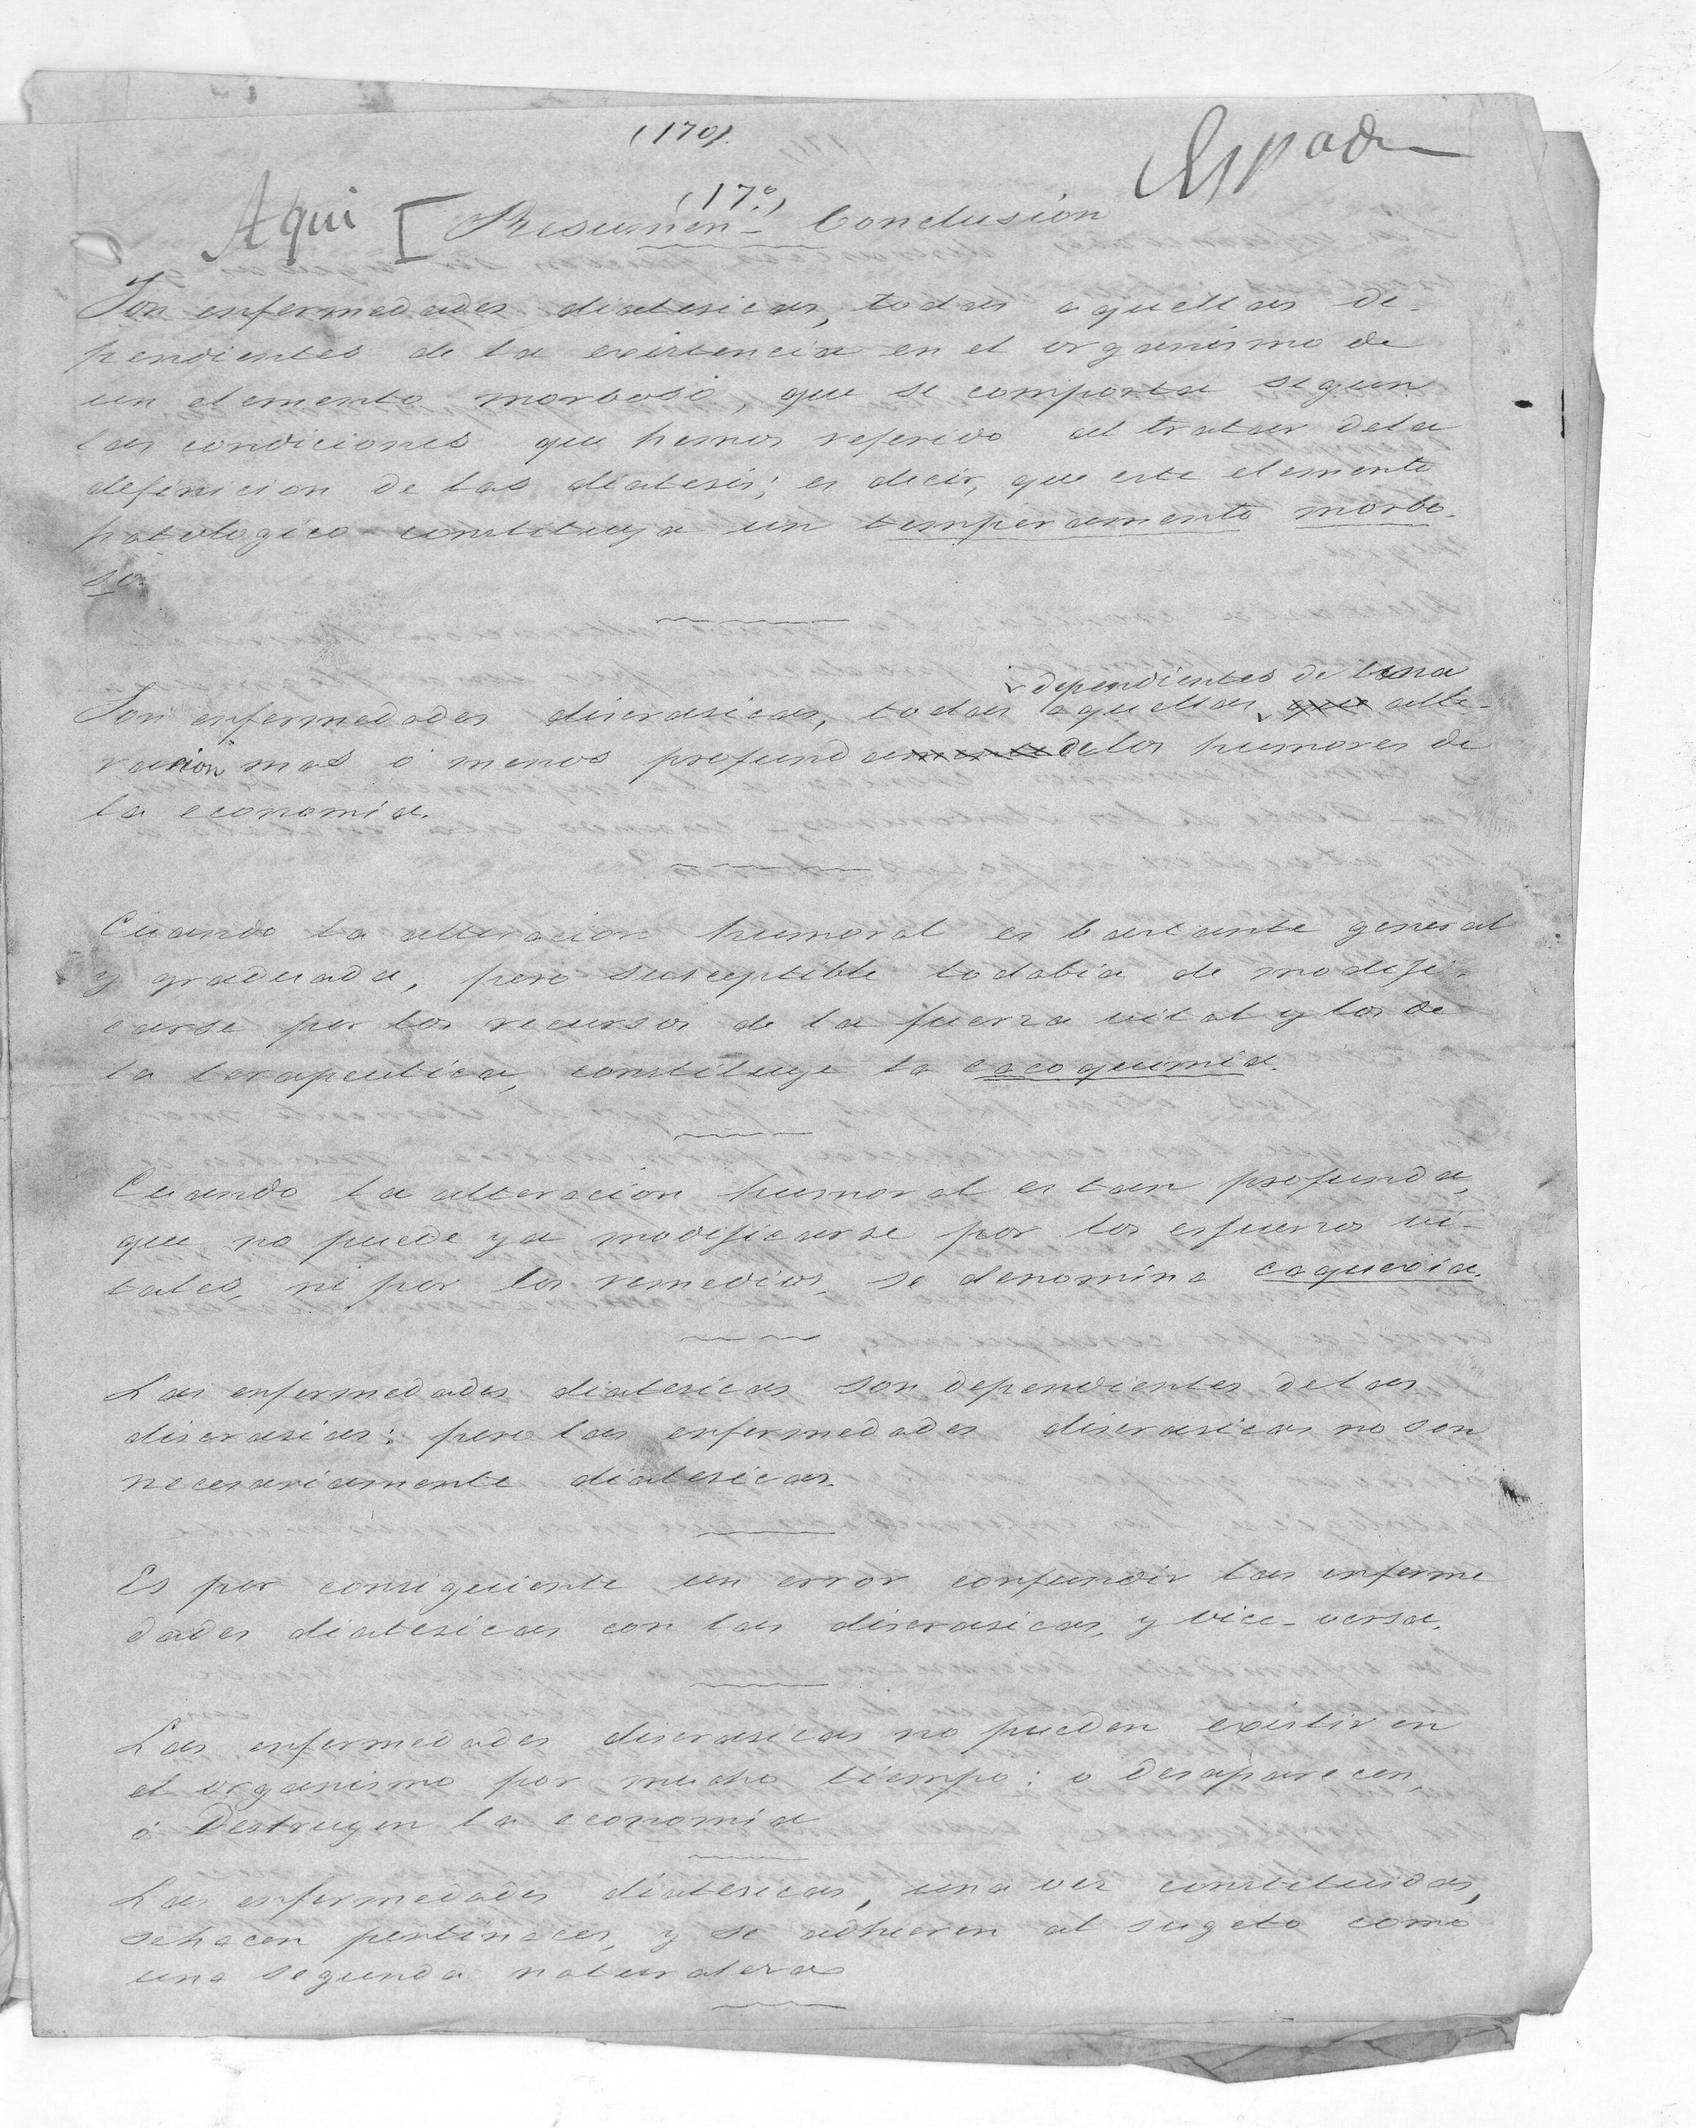 (170).
Espada
(17.º)
Aqui [ Resumen - Conclusión
Son enfermedades diatesicas, todas aquellas de-
pendientes de la existencia en el organismo de
un elemento morboso, que se comporta segun
las condiciones que hemos referido al tratar dela
definicion de las diatesis; es decir, que este elemento
patologico constituya un temperamento morbo-
so.
dependientes de una
Son enfermedades discrasicas, todas aquellas, que alte-
racion mas ó menos profundamente delos humores de
la economia.
Cuando la alteracion humoral es bastante general
y graduada, pero susceptible todabia de modifi-
carse por los recursos de la fuerza vital y los de
la terapeutica, constituye la cacoquimia.
Cuando la alteracion humoral es tan profunda,
que no puede ya modificarse por los esfuerzos vi-
tales, ni por los remedios, se denomina caquexia.
Las enfermedades diatesicas son dependientes delas
discrasias; pero las enfermedades discrasicas no son
necesariamente diatesicas.
Es por consiguiente un error confundir las enferme
dades diatesicas con las discrasicas, y vice-versa.
Las enfermedades discrasicas no pueden existir en
el organismo por mucho tiempo: o desaparecen,
ó destruyen la economia
Las enfermedades diatesicas, una vez constituidas,
sehacen pertinaces, y se adhieren al sugeto como
una segunda naturaleza